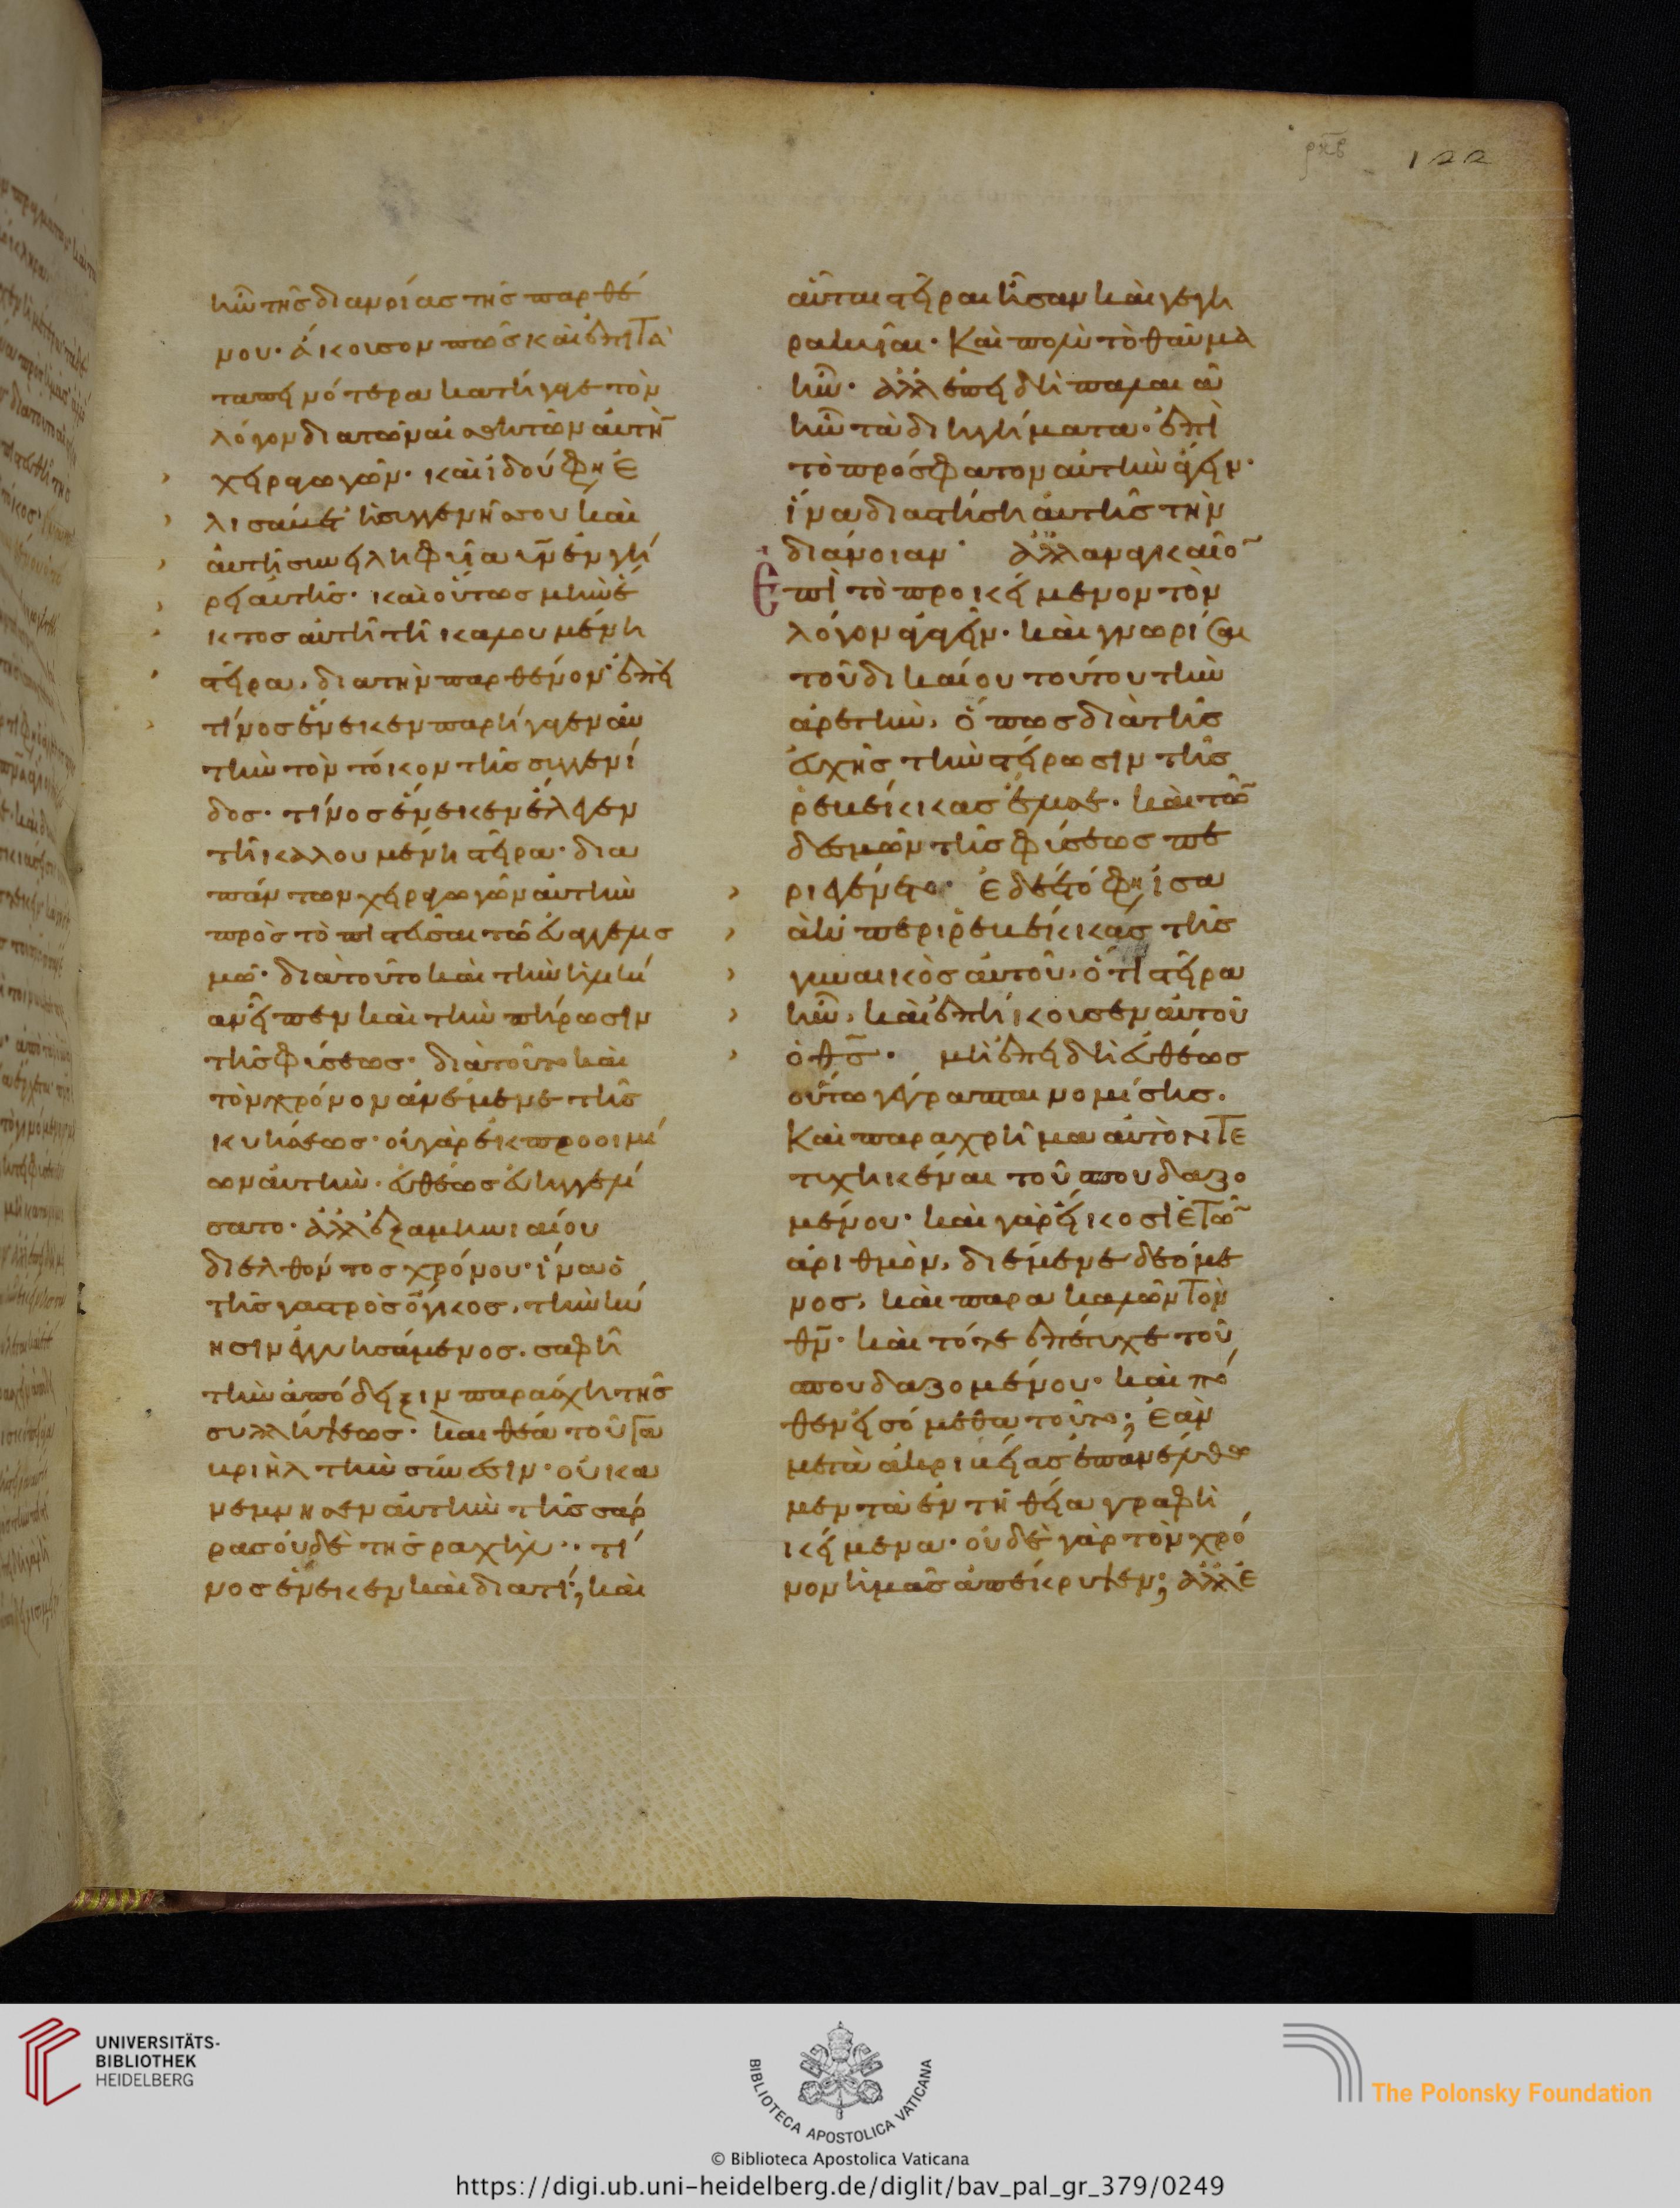 ρκβ 122
ἦν τῆς διανοίας τῆς παρθέ
νου· ἄκουσον πῶς καὶ ἐπὶ τὰ
ταπεινότερα κατήγαγε τὸν
λόγον διὰ τῶν αἰσθητῶν αὐτὴν
χειραγωγῶν· καὶ ἰδοὺ φη Ἐ
λισάβετ ἡ συγγενής σου καὶ
αὐτὴ συνειληφυῖα υἱὸν ἐν γή
ρει αὐτῆς· καὶ οὗτος μὴν ἕ
κτος αὐτῇ τῇ καλουμένῃ
στείρα, διὰ τὴν παρθένον ἐπεὶ
τίνος ἕνεκεν παρήγαγεν αὐ
τὴν τὸν τόκον τῆς συγγενί
δος· τίνος ἕνεκεν ἔλεγεν
τῇ καλουμένῃ στεῖρα· διὰ
πάντων χειραγωγῶν αὐτὴν
πρὸς τὸ πιστεῦσαι τῷ εὐαγγελισ
μῷ· διὰ τοῦτο καὶ τὴν ἡλικί
αν εἶπεν καὶ τὴν πήρωσιν
τῆς φύσεως· διὰ τοῦτο καὶ
τὸν χρόνον ἀνέμενε τῆς
κυήσεως· οὐ γὰρ ἐκ προοιμί
ων αὐτὴν· εὐθέως εὐηγγελί
σατο· ἀλλ' ἑξαμηνιαίου
διελθόντος χρόνου· ἵνα ὁ
τῆς γαστρὸς ὄγκος, τὴν κύ
ησιν ἐγγυησάμενος. σαφῆ
τὴν ἀπόδειξιν παράσχη τῆς
συλλήψεως· καὶ θέα τοῦ Γα
βριὴλ τὴν σύνεσιν· οὐκ ἀ
νέμνησεν αὐτὴν τῆς σάρ
ρας οὐδὲ τῆς ραχήλ·· τί
νος ἕνεκεν καὶ διατί; καὶ
αὗται στεῖραι ἦσαν καὶ γεγη
ρακυῖαι· Καὶ πολὺ τὸ θαῦμα
ἦν· ἀλλ' ἐπειδὴ παλαιὰ
ἦν τὰ διηγήματα· ἐπὶ
τὸ πρόσφατον αὐτὴν ἄγειν·
ἵνα διαστήση αὐτῆς τὴν
διάνοιαν· ἀλλ' ἀναγκαῖον
Ἐπὶ τὸ προκείμενον τὸν
λόγον ἀγαγεῖν· καὶ γνωρίσαι
τοῦ δικαίου τούτου τὴν
ἀρετὴν, ὅπως διὰ τῆς
εὐχῆς τὴν στείρωσιν τῆς
ῥεβέκκας ἔλυσε· καὶ τῶν
δεσμῶν τῆς φύσεως πε
ριεγένετο· Ἐδεῖτό φη ἰσα
ὰκ περὶ ῥεβέκκας τῆς
γυναικὸς αὐτοῦ, ὅτι στεῖρα
ἦν, καὶ ἐπήκουσεν αὐτοῦ
ὁ θς· μὴ ἐπειδὴ εὐθέως
οὕτω γέγραπται νομίσης.
Καὶ παραχρῆμα αὐτὸν τε
τυχηκέναι τοῦ σπουδαζο
μένου· καὶ γὰρ εἴκοσι ἐτῶν
ἀριθμὸν, διέμενε δεόμε
νος, καὶ παρακαλῶν τὸν
θν· καὶ τότε ἐπέτυχε τοῦ
σπουδαζομένου· καὶ πό
θεν εἰσόμεθα τοῦτο; Ἐὰν
μετὰ ἀκριβείας ἐπανέλθω
μεν τὰ ἐν τῇ θεία γραφῆ
κείμενα· οὐδὲ γὰρ τὸν χρό
νον ἡμᾶς ἀπέκρυψεν; ἀλλ' ἐ
UNIVERSITÄTS-
BIBLIOTHEK
HEIDELBERG
BIBLIOTECA APOSTOLICA VATICANA
The Polonsky Foundation
© Biblioteca Apostolica Vaticana
https://digi.ub.uni-heidelberg.de/diglit/bav_pal_gr_379/0249